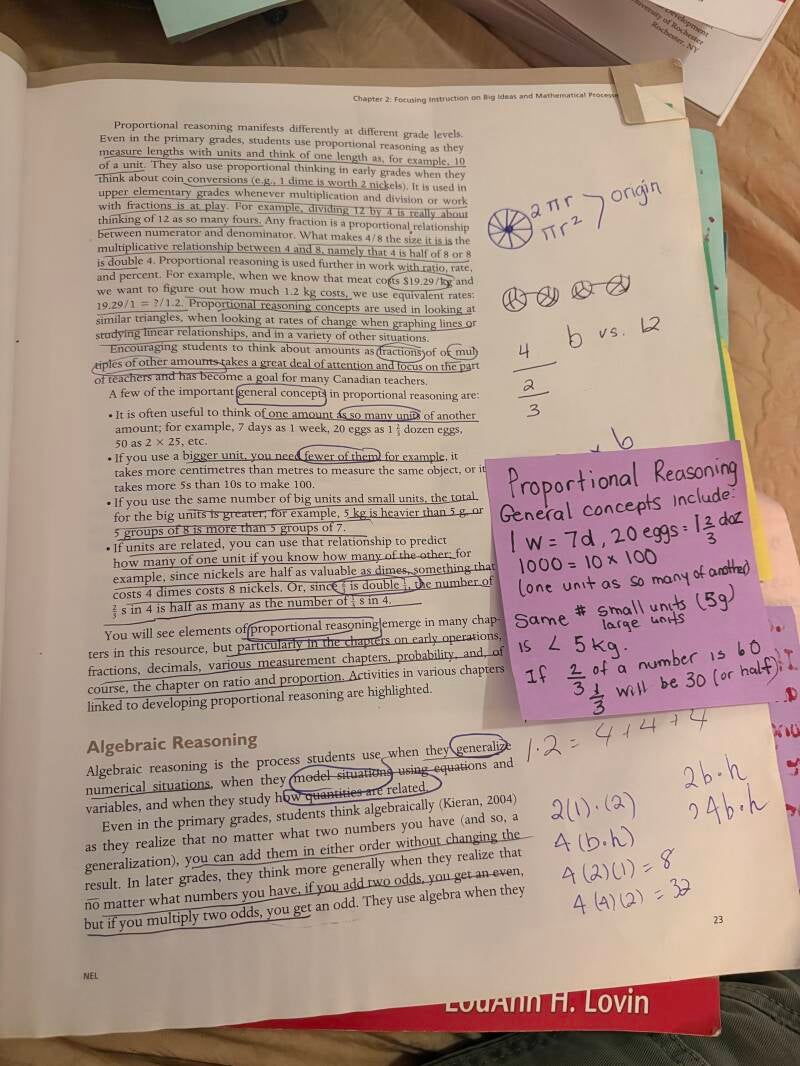 Development
University of Rochester
Rochester, NY
Chapter 2: Focusing Instruction on Big Ideas and Mathematical Processe
Proportional reasoning manifests differently at different grade levels.
Even in the primary grades, students use proportional reasoning as they
measure lengths with units and think of one length as, for example, 10
of a unit. They also use proportional thinking in early grades when they
think about coin conversions (e.g., 1 dime is worth 2 nickels). It is used in
upper elementary grades whenever multiplication and division or work
with fractions is at play. For example, dividing 12 by 4 is really about
thinking of 12 as so many fours. Any fraction is a proportional relationship
between numerator and denominator. What makes 4/8 the size it is is the
multiplicative relationship between 4 and 8, namely that 4 is half of 8 or 8
is double 4. Proportional reasoning is used further in work with ratio, rate,
and percent. For example, when we know that meat costs $19.29/kg and
we want to figure out how much 1.2 kg costs, we use equivalent rates:
19.29/1 = ?/1.2. Proportional reasoning concepts are used in looking at
similar triangles, when looking at rates of change when graphing lines or
studying linear relationships, and in a variety of other situations.
Encouraging students to think about amounts as fractions of or mul
tiples of other amounts takes a great deal of attention and focus on the part
of teachers and has become a goal for many Canadian teachers.
A few of the important general concepts in proportional reasoning are:
• It is often useful to think of one amount as so many units of another
amount; for example, 7 days as 1 week, 20 eggs as 1 2/3 dozen eggs,
50 as 2 × 25, etc.
• If you use a bigger unit, you need fewer of them; for example, it
takes more centimetres than metres to measure the same object, or it
takes more 5s than 10s to make 100.
• If you use the same number of big units and small units, the total
for the big units is greater; for example, 5 kg is heavier than 5 g, or
5 groups of 8 is more than 5 groups of 7.
• If units are related, you can use that relationship to predict
how many of one unit if you know how many of the other; for
example, since nickels are half as valuable as dimes, something that
costs 4 dimes costs 8 nickels. Or, since 2/3 is double 1/3, the number of
2/3 s in 4 is half as many as the number of 1/3 s in 4.
You will see elements of proportional reasoning emerge in many chap-
ters in this resource, but particularly in the chapters on early operations,
fractions, decimals, various measurement chapters, probability, and, of
course, the chapter on ratio and proportion. Activities in various chapters
linked to developing proportional reasoning are highlighted.
Algebraic Reasoning
Algebraic reasoning is the process students use when they generalize
numerical situations, when they model situations using equations and
variables, and when they study how quantities are related.
Even in the primary grades, students think algebraically (Kieran, 2004)
as they realize that no matter what two numbers you have (and so, a
generalization), you can add them in either order without changing the
result. In later grades, they think more generally when they realize that
no matter what numbers you have, if you add two odds, you get an even,
but if you multiply two odds, you get an odd. They use algebra when they
23
NEL
2πr
πr²
origin
4
2
3
b vs. 12
b
Proportional Reasoning
General concepts include:
1 w = 7d, 20 eggs = 1 2/3 doz
1000 = 10 × 100
(one unit as so many of another)
Same # small units (5g)
large units
is < 5 kg.
If 2/3 of a number is 60
1/3 will be 30 (or half)
1·2 = 4+4+4
2(1)·(2)
4(b·h)
4(2)(1) = 8
4(4)(2) = 32
2b·h
24b·h
LouAnn H. Lovin